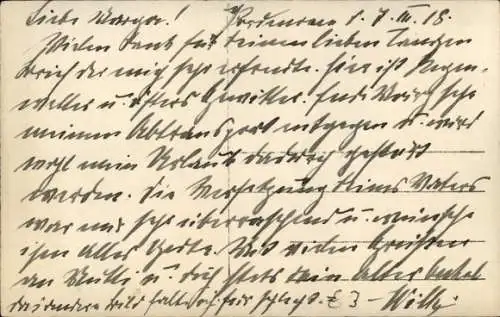 Liebe Margor! 7. III. 18.
Vielen Dank für deinen lieben langen
Brief der mich sehr erfreute. Hier ist Regen-
wetter u. öfters Gewitter. Ende März sehe
meinem Abtransport entgegen u. wird
wohl mein Urlaub dadurch gestört
werden. Die Versetzung deines Vaters
war mir sehr überraschend u. wünsche
ihm alles Gute. Mit vielen Grüssen
an Mutti u. dich stets dein alter
Bild für Willy.